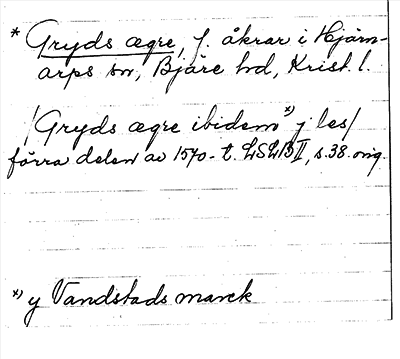 * Gryds ægre, f. åkrar i Hjärn-
arps sn, Bjäre hd, Krist. l.
/Gryds ægre ibidem *) j les/
förra delen av 1570-t. LSLB II, s. 38. orig.
*) y Vandstads marck